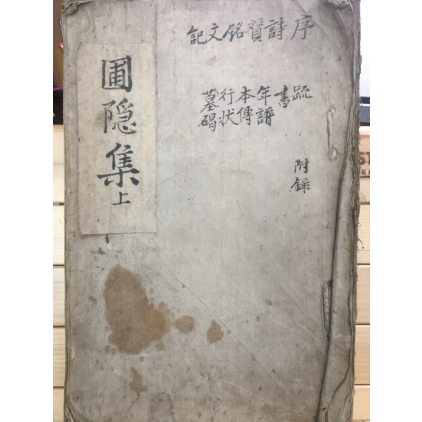 圃隐集上
序詩賛銘文記
疏
書
年譜
本傳
行状
墓碣
附錄